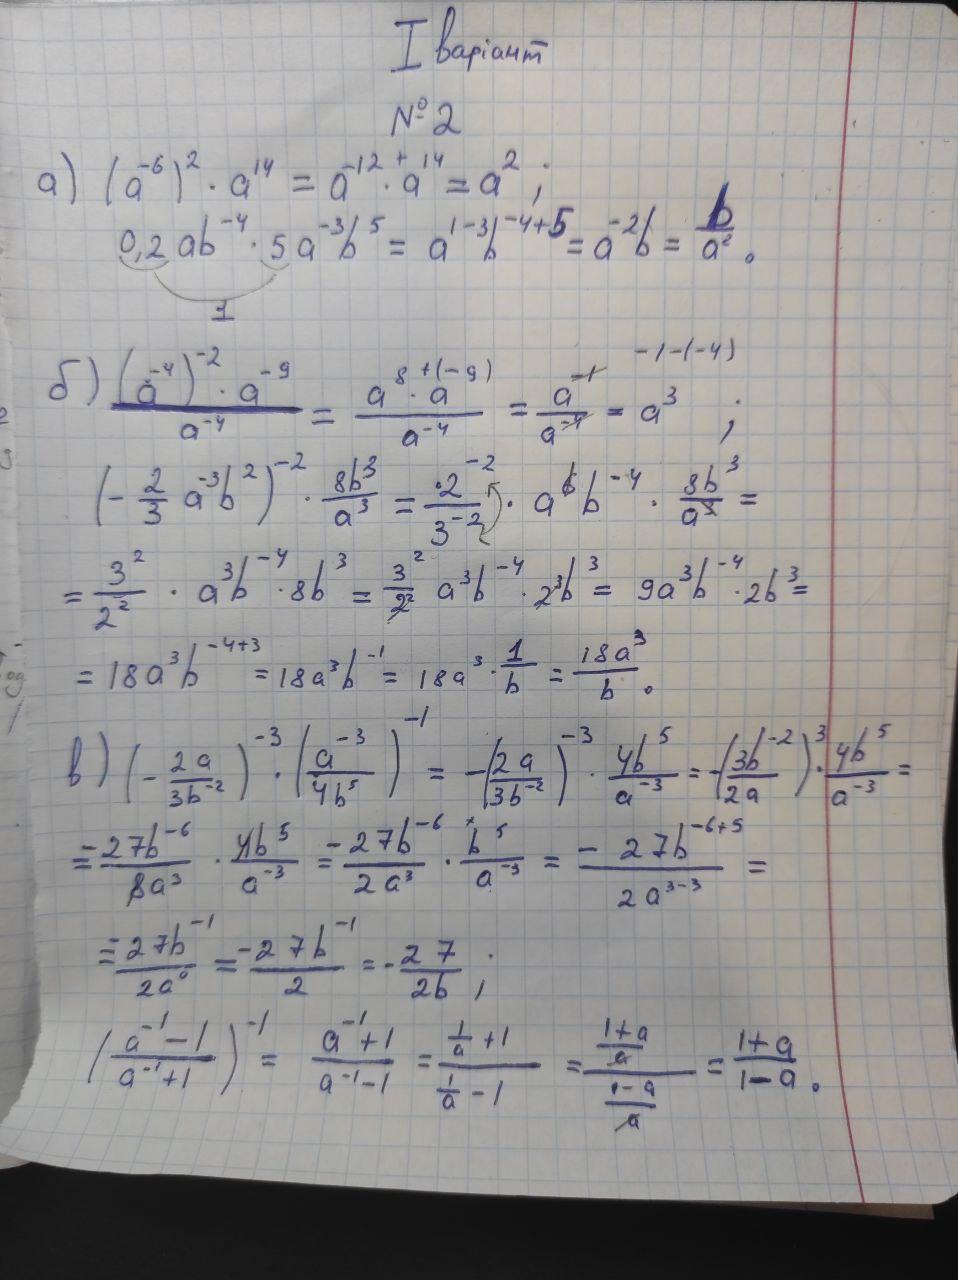 I варіант
№ 2
а) (a^-6)^2 · a^14 = a^-12 · a^+14 = a^2 ;
0,2 ab^-4 · 5a^-3b^5 = a^1-3b^-4+5 = a^-2b = b/a^2 .
1
б) ((a^-4)^-2 · a^-9)/a^-4 = (a^8 · a^+(-9))/a^-4 = a^-1/a^-4 = a^3 ^-1-(-4) ;
(- 2/3 a^-3b^2)^-2 · 8b^3/a^3 = 2^-2/3^-2 · a^6b^-4 · 8b^3/a^3 =
= 3^2/2^2 · a^3b^-4 · 8b^3 = 3^2/2^2 a^3b^-4 · 2^3b^3 = 9a^3b^-4 · 2b^3 =
= 18a^3b^-4+3 = 18a^3b^-1 = 18a^3 · 1/b = 18a^3/b .
в) (- 2a/3b^-2)^-3 · (a^-3/4b^5)^-1 = -(2a/3b^-2)^-3 · 4b^5/a^-3 = -(3b^-2/2a)^3 · 4b^5/a^-3 =
= -27b^-6/8a^3 · 4b^5/a^-3 = -27b^-6/2a^3 · b^5/a^-3 = -27b^-6+5/2a^3-3 =
= -27b^-1/2a^0 = -27b^-1/2 = - 27/2b ;
((a^-1 - 1)/(a^-1 + 1))^-1 = (a^-1 + 1)/(a^-1 - 1) = (1/a + 1)/(1/a - 1) = ((1+a)/a)/((1-a)/a) = (1+a)/(1-a) .